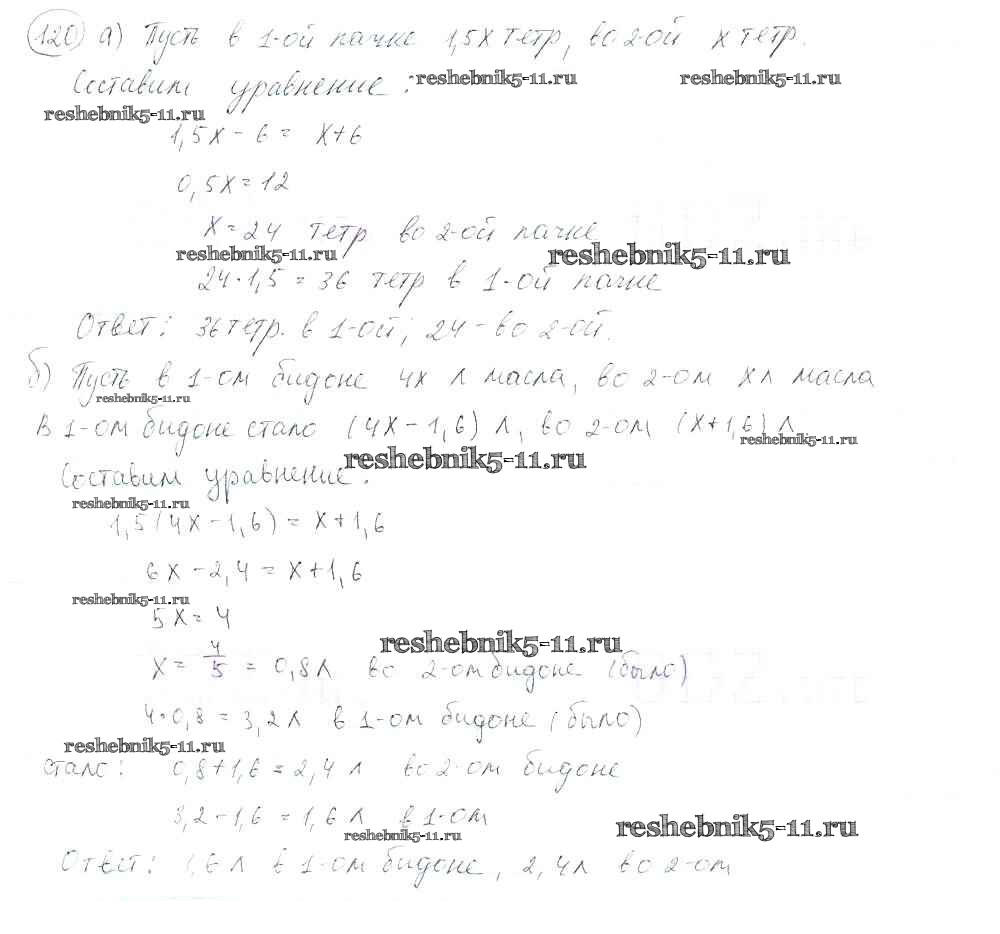 120 а) Пусть в 1-ой пачке 1,5х тетр, во 2-ой х тетр.
Составим уравнение:
reshebnik5-11.ru
reshebnik5-11.ru
reshebnik5-11.ru
1,5х - 6 = х+6
0,5х = 12
х = 24 тетр во 2-ой пачке
reshebnik5-11.ru
reshebnik5-11.ru
24·1,5 = 36 тетр в 1-ой пачке
Ответ: 36 тетр. в 1-ой; 24 - во 2-ой.
б) Пусть в 1-ом бидоне 4х л масла, во 2-ом х л масла
reshebnik5-11.ru
В 1-ом бидоне стало (4х - 1,6) л, во 2-ом (х+1,6) л.
reshebnik5-11.ru
reshebnik5-11.ru
Составим уравнение:
reshebnik5-11.ru
1,5(4х - 1,6) = х + 1,6
6х - 2,4 = х + 1,6
reshebnik5-11.ru
5х = 4
reshebnik5-11.ru
х = 4/5 = 0,8 л во 2-ом бидоне (было)
4·0,8 = 3,2 л в 1-ом бидоне (было)
reshebnik5-11.ru
стало: 0,8+1,6 = 2,4 л во 2-ом бидоне
3,2 - 1,6 = 1,6 л в 1-ом
reshebnik5-11.ru
reshebnik5-11.ru
Ответ: 1,6 л в 1-ом бидоне, 2,4 л во 2-ом